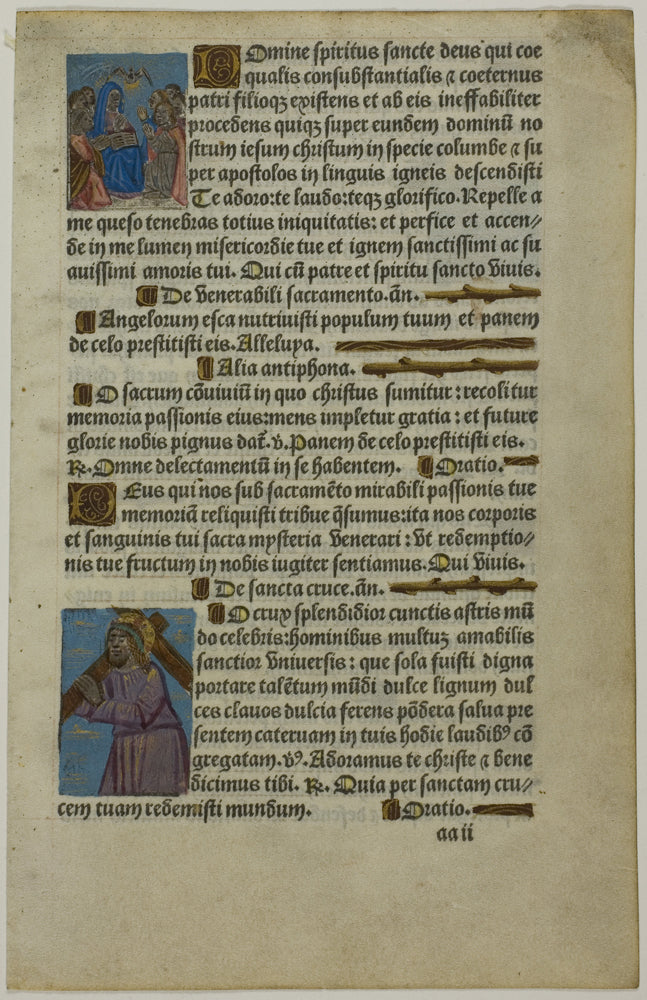 Domine spiritus sancte deus qui coe
qualis consubstantialis ⁊ coeternus
patri filioqꝫ existens et ab eis ineffabiliter
procedens quiqꝫ super eundem dominū no
strum iesum christum in specie columbe ⁊ su
per apostolos in linguis igneis descendisti
Te adoro:te laudo:teqꝫ glorifico. Repelle a
me queso tenebras totius iniquitatis: et perfice et accen⸗
de in me lumen misericordie tue et ignem sanctissimi ac su
auissimi amoris tui. Qui cū patre et spiritu sancto viuis.
De venerabili sacramento. añ.
Angelorum esca nutriuisti populum tuum et panem
de celo prestitisti eis. Alleluya.
Alia antiphona.
O sacrum cōuiuiū in quo christus sumitur: recolitur
memoria passionis eius:mens impletur gratia: et future
glorie nobis pignus dat̄. v. Panem de celo prestitisti eis.
R. Omne delectamentū in se habentem. Oratio.
DEus qui nos sub sacramēto mirabili passionis tue
memoriā reliquisti tribue q̄sumus: ita nos corporis
et sanguinis tui sacra mysteria venerari: vt redemptio⸗
nis tue fructum in nobis iugiter sentiamus. Qui viuis.
De sancta cruce. añ.
O crux splendidior cunctis astris mū
do celebris:hominibus multuꝫ amabilis
sanctior vniuersis: que sola fuisti digna
portare talētum mūdi dulce lignum dul
ces clauos dulcia ferens pōdera salua pre
sentem cateruam in tuis hodie laudibꝰ cō
gregatam. vꝰ. Adoramus te christe ⁊ bene
dicimus tibi. R. Quia per sanctam cru⸗
cem tuam redemisti mundum. Oratio.
aa ii